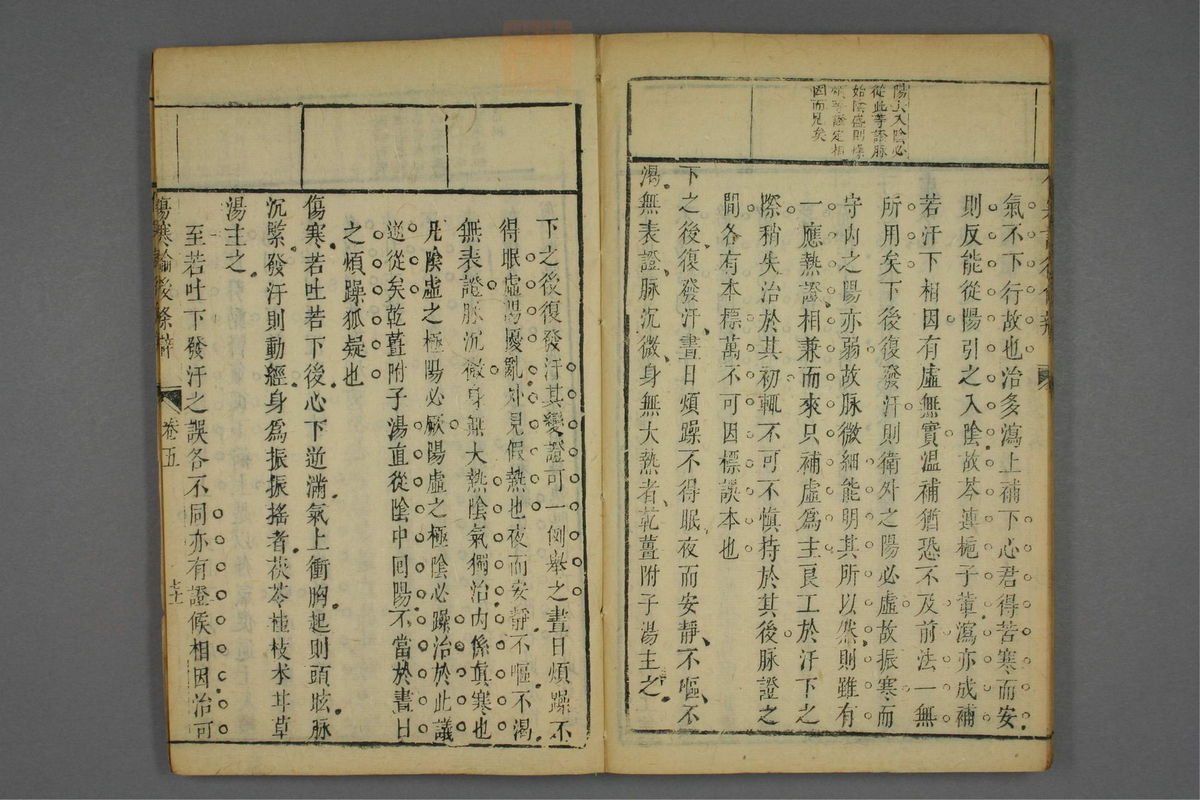 陽入陰必
從此等證脉
始陰盛則燥
煩等證定相
因而見矣
氣不下行故也治多瀉上補下心君得苦寒而安
則反能從陽引之入陰故芩連梔子輩瀉亦成補
若汗下相因有虛無實温補猶恐不及前法一無
所用矣下後復發汗則衛外之陽必虛故振寒而
守内之陽亦弱故脉微細能明其所以然則雖有
一應熱證相兼而來只補虛爲主良工於汗下之
際稍失治於其初輒不可不慎持於其後脉證之
間各有本標萬不可因標誤本也
下之後復發汗晝日煩躁不得眠夜而安靜不嘔不
渴無表證脉沉微身無大熱者乾薑附子湯主之
下之後復發汗其變證可一例擧之晝日煩躁不
得眠虛陽擾亂外見假熱也夜而安靜不嘔不渴
無表證脉沉微身無大熱陰氣獨治内係眞寒也
凡陰虛之極陽必厥陽虛之極陰必躁治於此議
逆從矣乾薑附子湯直從陰中回陽不當於晝日
之煩躁狐疑也
傷寒若吐若下後心下逆滿氣上衝胸起則頭眩脉
沉緊發汗則動經身爲振振搖者茯苓桂枝术甘草
湯主之
至若吐下發汗之誤各不同亦有證候相因治可
傷寒論後條辨 卷五